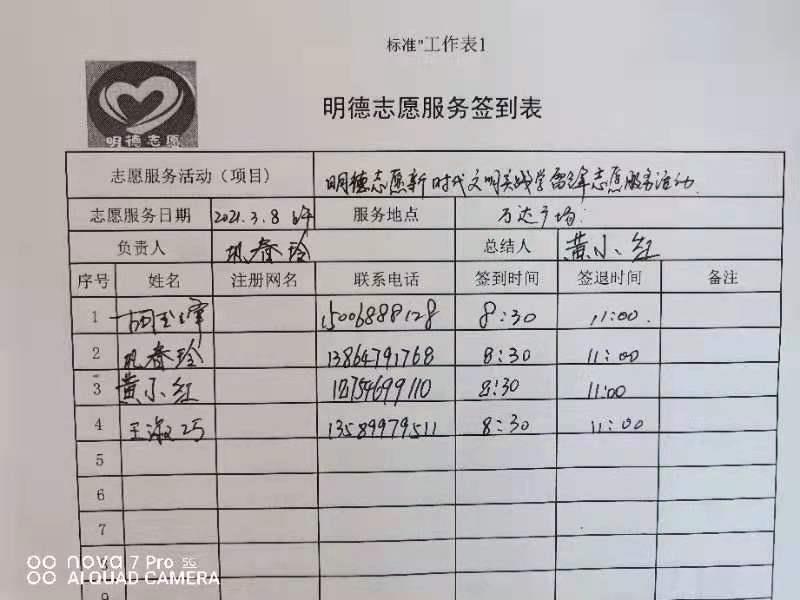 标准"工作表1
明德志愿
明德志愿服务签到表
志愿服务活动（项目） 明德志愿新时代文明实践学雷锋志愿服务活动
志愿服务日期 2021.3.8 服务地点 万达广场
负责人 巩春玲 总结人 黄小红
序号 姓名 注册网名 联系电话 签到时间 签退时间 备注
1 15006888128 8:30 11:00.
2 巩春玲 13864791768 8:30 11:00
3 黄小红 18754699110 8:30 11:00
4 王淑巧 13589979511 8:30 11:00
5
6
7
8
9
nova 7 Pro 5G
AI QUAD CAMERA